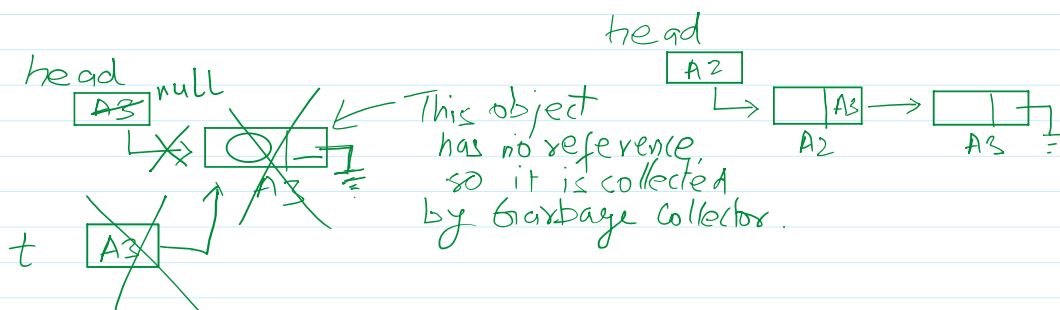 head
A3 null
A3
t A3
This object
has no reference,
so it is collected
by Garbage Collector.
head
A2
A3
A2
A3